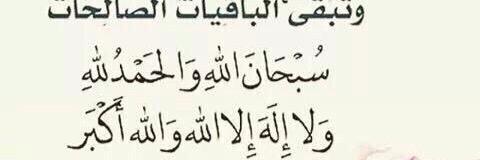 وتبقى الباقيات الصالحات
سُبْحَانَ اللهِ وَالحَمْدُ للهِ
وَلا إِلَهَ إِلا اللهُ وَاللهُ أَكْبَر